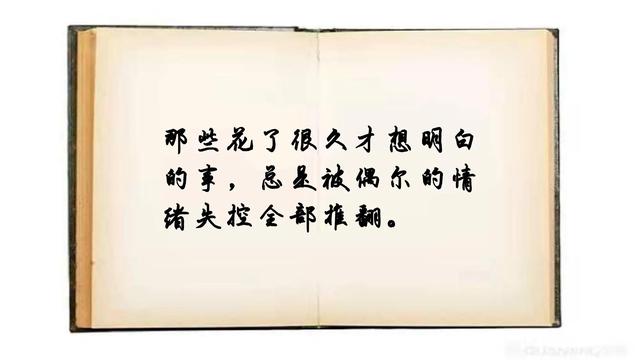 那些花了很久才想明白
的事，总是被偶尔的情
绪失控全部推翻。